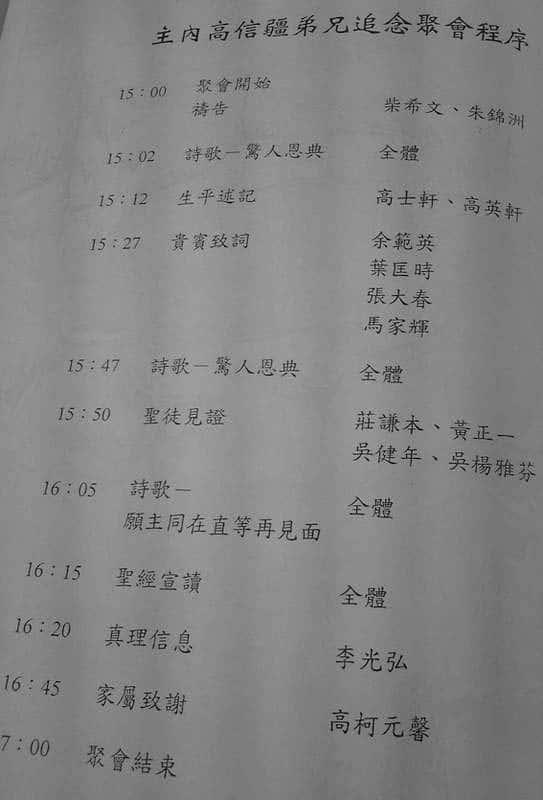 主內高信疆弟兄追念聚會程序
15：00 聚會開始
禱告 柴希文、朱錦洲
15：02 詩歌－驚人恩典 全體
15：12 生平述記 高士軒、高英軒
15：27 貴賓致詞 余範英
葉匡時
張大春
馬家輝
15：47 詩歌－驚人恩典 全體
15：50 聖徒見證 莊謙本、黃正一
吳健年、吳楊雅芬
16：05 詩歌－ 全體
願主同在直等再見面
16：15 聖經宣讀 全體
16：20 真理信息 李光弘
16：45 家屬致謝 高柯元馨
7：00 聚會結束